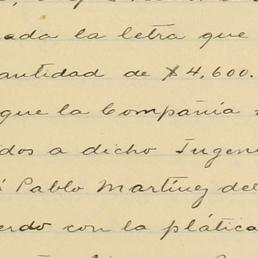 ada la letra que
antidad de $4,600.
que la Compañía
dos a dicho Ingeni
Pablo Martínez del
erdo con la plática